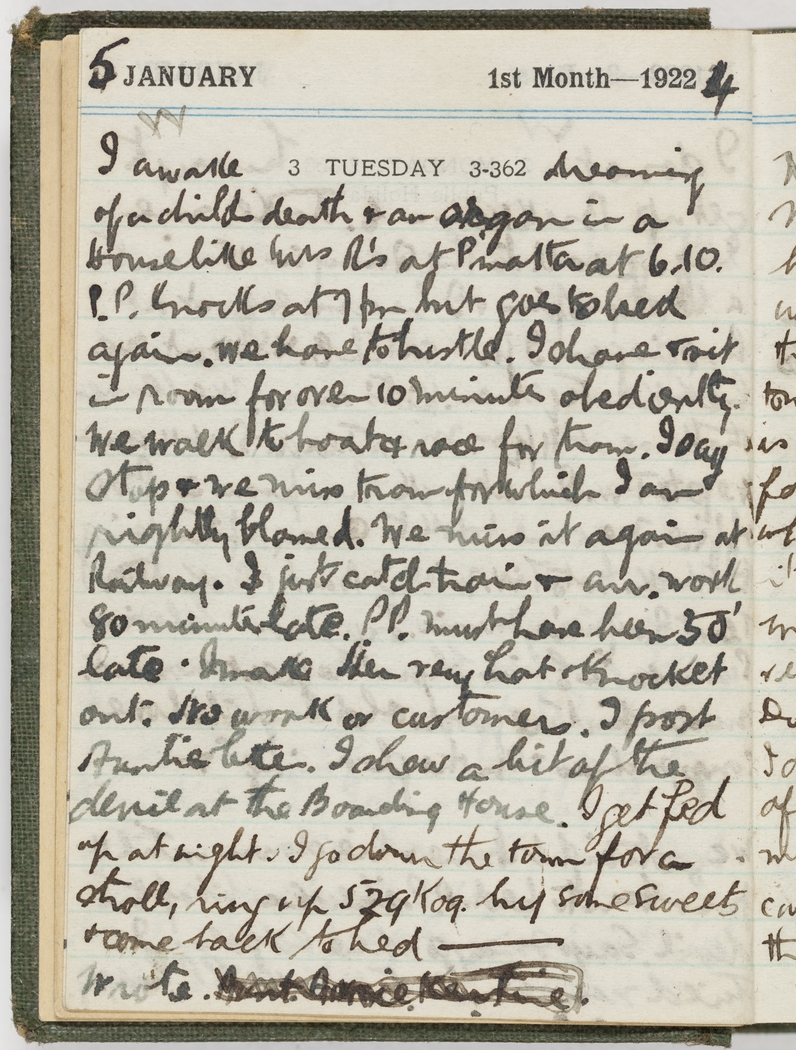 5 JANUARY 1st Month—1922 4
I awake 3 TUESDAY 3-362 dreaming
of a childs death & an organ in a
House like Mrs R's at P'matta at 6.10.
P.P. knocks at 7 pm but goes to bed
again. We have to hustle. I shave & sit
in room for over 10 minutes obediently.
We walk to boat & race for tram. I say
Stop & we miss tram for which I am
rightly blamed. We miss it again at
Railway. I just catch train & arr. work
80 minutes late. P.P. must have been 30'
late. I was very hot & knocked
out. No work or customers. I post
Auntie letter. I chew a bit of the
devil at the Boarding House. I get fed
up at night. I go down the town for a
stroll, ring up 529 Kog. buy some sweets
& come back to bed —
Wrote.